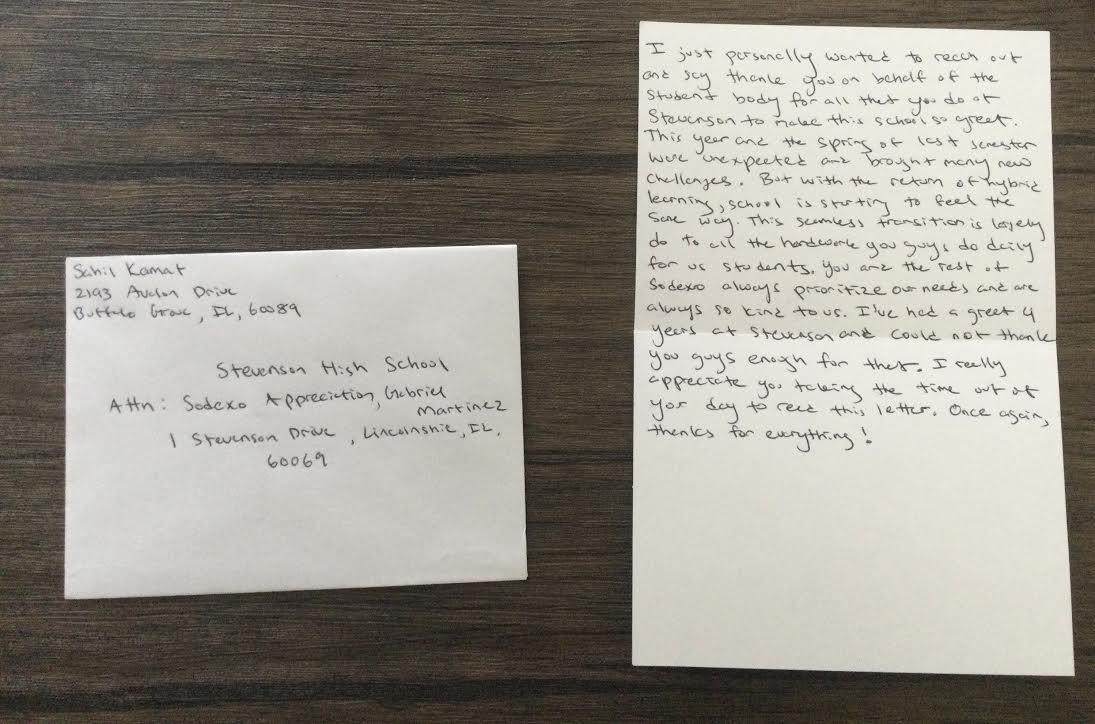 Sahil Kamat
2193 Avalon Drive
Buffalo Grove, IL, 60089
Stevenson High School
Attn: Sodexo Appreciation, Gabriel
Martinez
1 Stevenson Drive, Lincolnshire, IL,
60069
I just personally wanted to reach out
and say thank you on behalf of the
student body for all that you do at
Stevenson to make this school so great.
This year and the spring of last semester
were unexpected and brought many new
challenges. But with the return of hybrid
learning, school is starting to feel the
same way. This seamless transition is largely
do to all the hardwork you guys do daily
for us students. You and the rest of
Sodexo always prioritize our needs and are
always so kind to us. I've had a great 4
years at Stevenson and could not thank
you guys enough for that. I really
appreciate you taking the time out of
your day to read this letter. Once again,
thanks for everything!